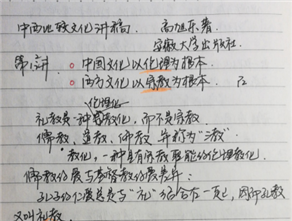 中西比较文化讲稿. 高旭东 著.
安徽大学出版社.
第1讲 中国文化以伦理为根本.
西方文化以宗教为根本.
伦理化
礼教是一种 文化, 而不是宗教
儒教、道教、佛教, 并称为“三教”
教化, 一种具有宗教 的伦理教化.
儒教的 与基督教的 :
孔子的仁 与“礼” 结合在一起, 因而孔教
又叫礼教.